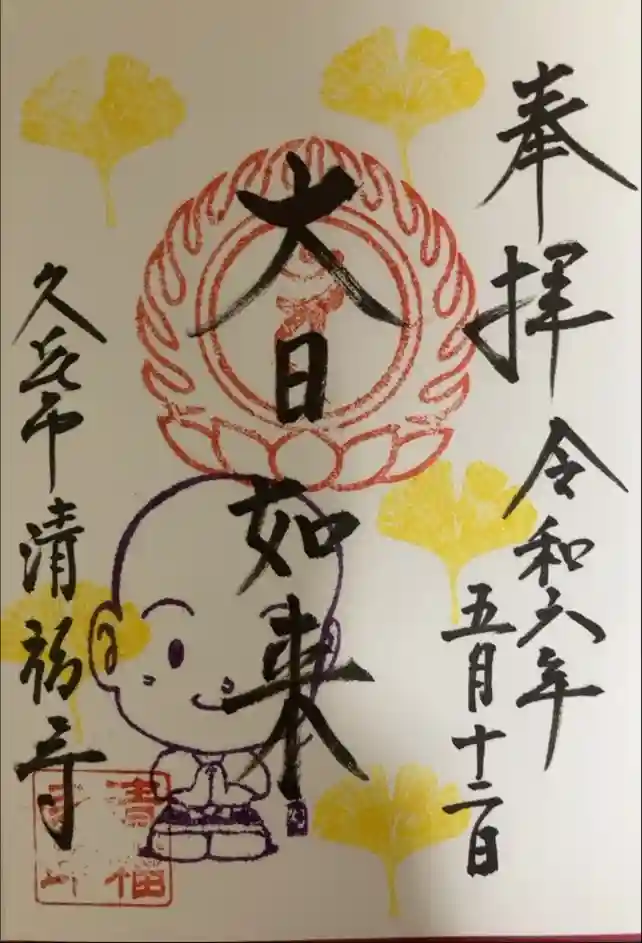 奉拝 令和六年
五月十二日
大日如来
久喜市清福寺
清福